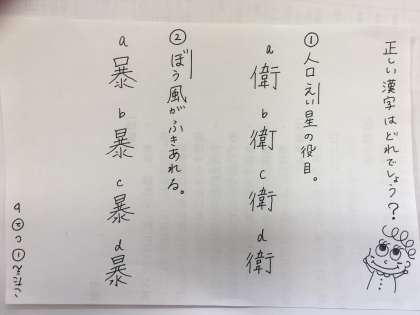 正しい漢字はどれでしょう？
① 人口えい星の役目。
a 衛 b 衛 c 衛 d 衛
② ぼう風がふきあれる。
a 暴 b 暴 c 暴 d 暴
こたえ ① c ②